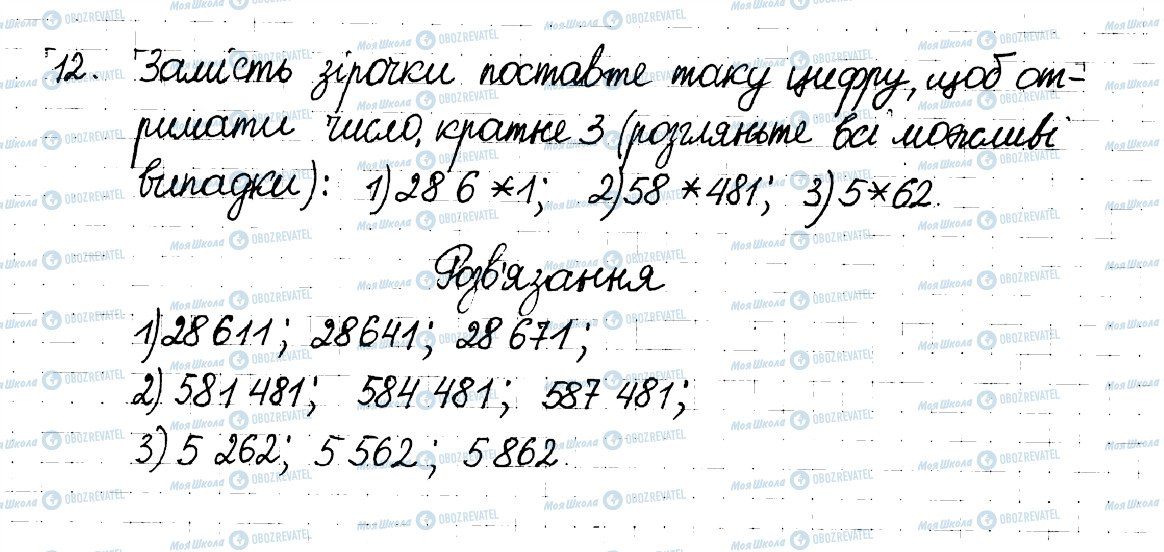 12. Замість зірочки поставте таку цифру, щоб от-
римати число, кратне 3 (розгляньте всі можливі
випадки): 1) 28 6 *1; 2) 58 *481; 3) 5*62.
Розв'язання
1) 28 611; 28 641; 28 671;
2) 581 481; 584 481; 587 481;
3) 5 262; 5 562; 5 862.